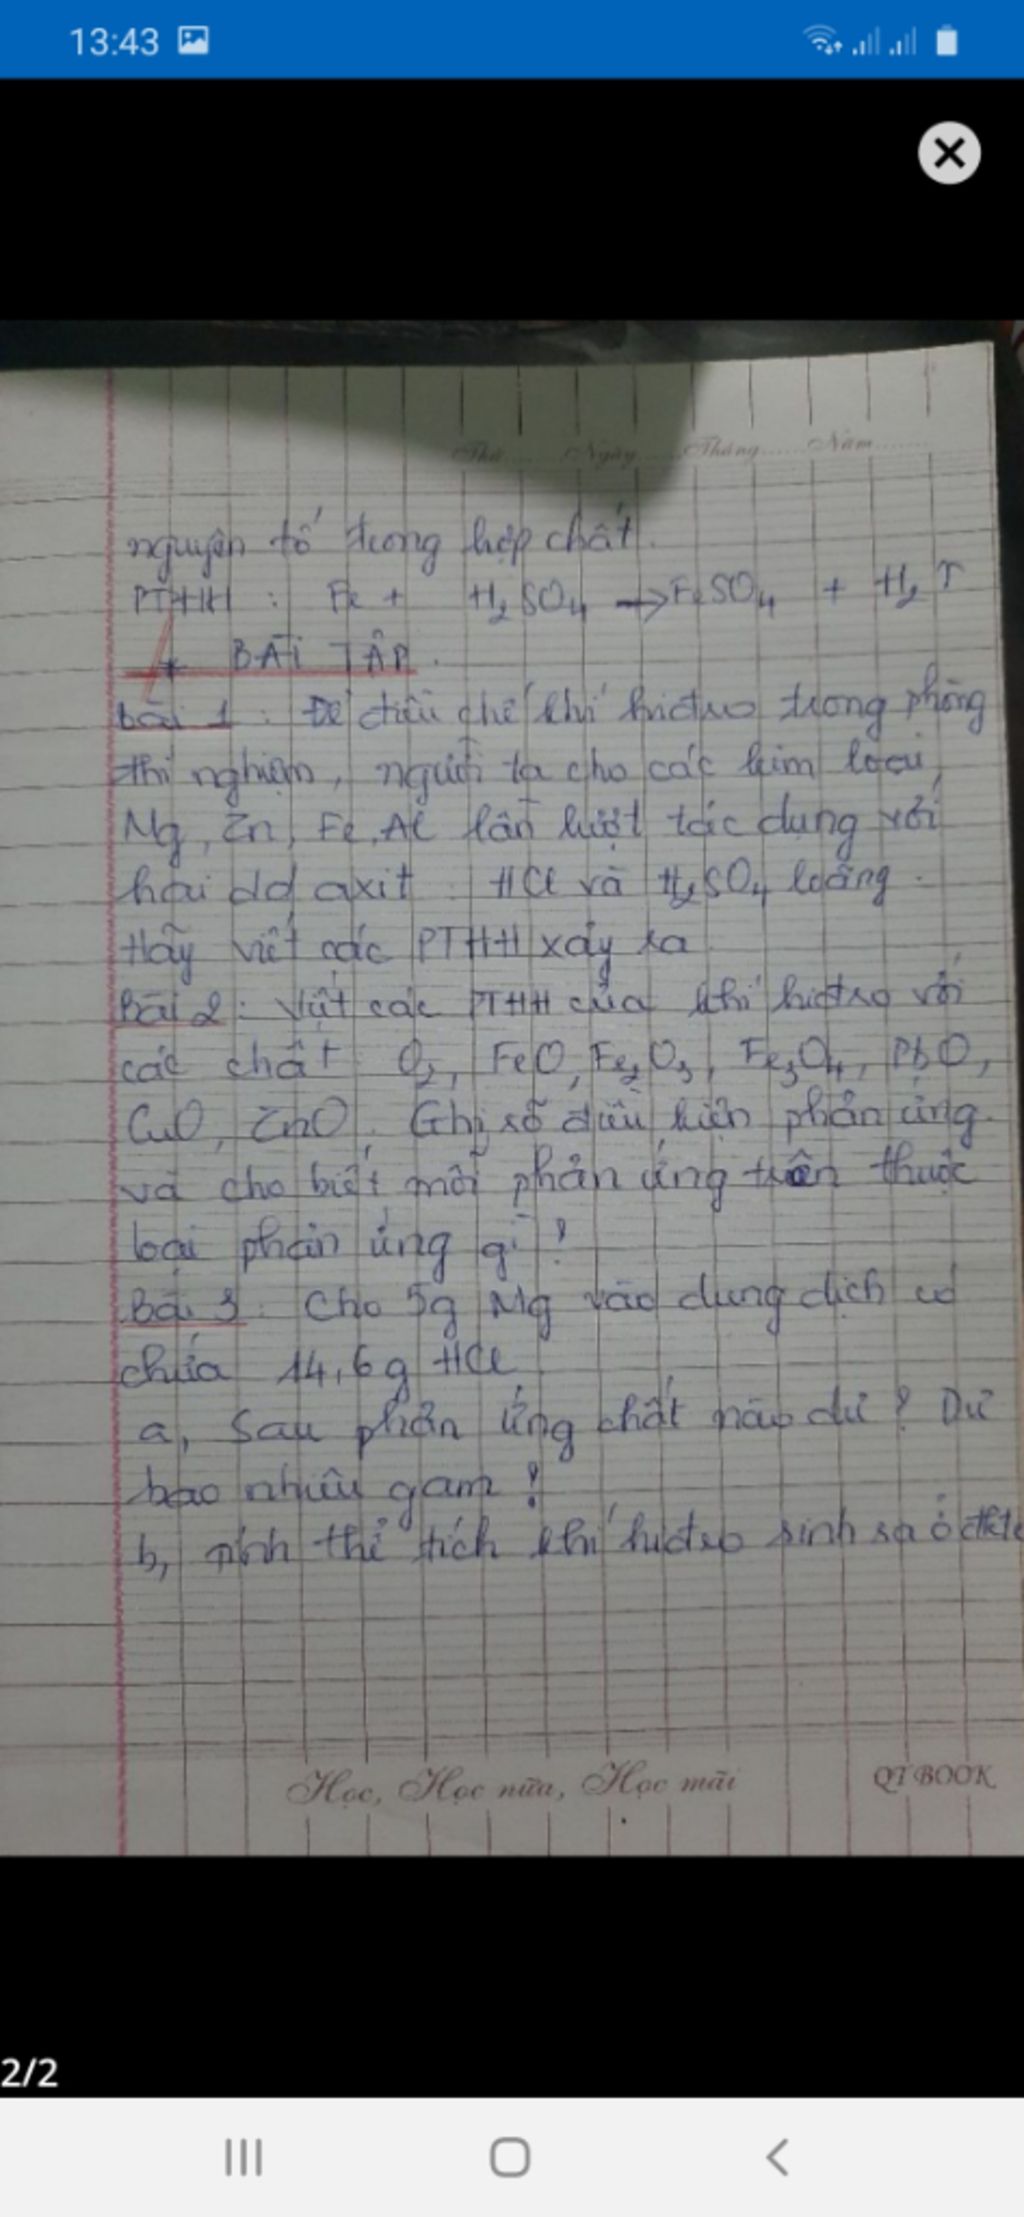 13:43
Thứ Ngày Tháng Năm
nguyên tố trong hợp chất.
PTHH : Fe + H₂SO₄ → FeSO₄ + H₂ ↑
* BÀI TẬP.
bài 1 : Để điều chế khí hiđro trong phòng
thí nghiệm, người ta cho các kim loại
Mg, Zn, Fe, Al lần lượt tác dụng với
hai dd axit HCl và H₂SO₄ loãng.
Hãy viết các PTHH xảy ra
Bài 2 : Viết các PTHH của khí hiđro với
các chất O₂, FeO, Fe₂O₃, Fe₃O₄, PbO,
CuO, ZnO. Ghi số điều kiện phản ứng
và cho biết mỗi phản ứng trên thuộc
loại phản ứng gì ?
Bài 3 : Cho 5g Mg vào dung dịch có
chứa 14,6g HCl
a, Sau phản ứng chất nào dư ? Dư
bao nhiêu gam ?
b, tính thể tích khí hiđro sinh ra ở đktc
Học, Học nữa, Học mãi
QTBOOK
2/2